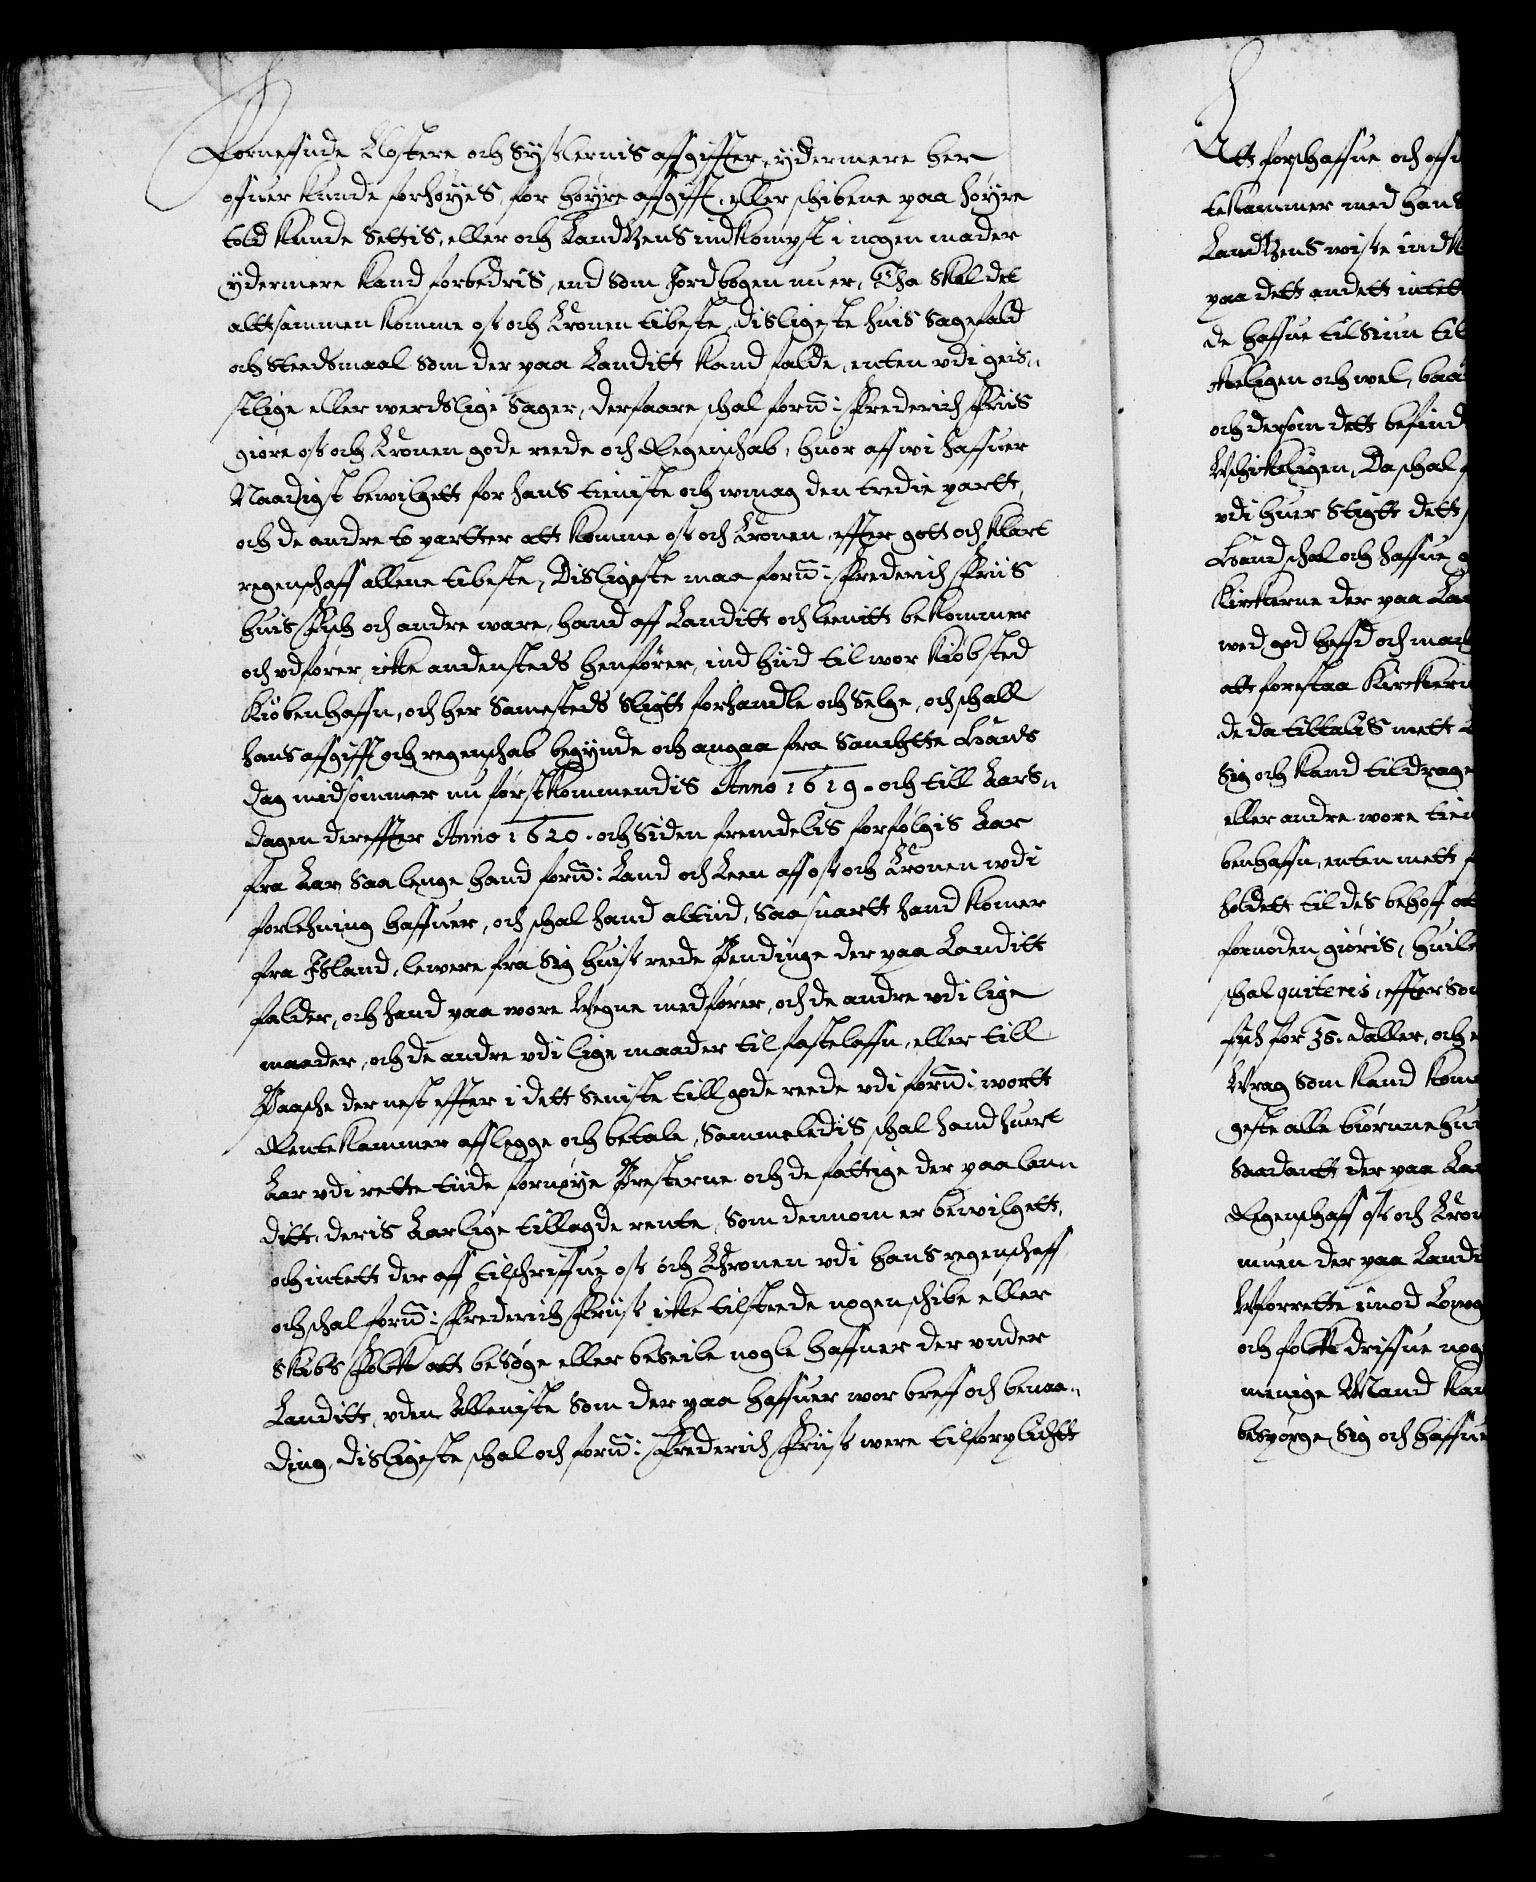 Fornefnde Clostere och Syslernis affgiffter, ydermere her
ofuer kunde forhøyes, for høyre affgifft, eller schibene paa høyre
told kunde Settis, eller och Landzens indkompst i nogen mader
ydermere kand forbedris, end som Jordbogen nu er, Tha skal det
altsammen komme os och Cronen tilbeste, disligeste huis Sagefald
och Stedsmaal som der paa Landitt kand falde, enten vdi geis-
stlige eller werdslige Sager, derfaare schal forn: Frederich Friis
giøre os och Cronen gode reede och Regenschab, huor aff wi haffuer
Naadigst bewilgett for hans tieniste och wmag den tredie partt,
och de andre to partter att komme os och Cronen, effter gott och klart
regenschaff allene tilbeste, Disligeste maa forn: Frederich Friis
huis Fisch och andre ware, hand aff Landitt och leenitt bekommer
och vdfører, icke andensteds henfører, ind hiid til wor Kiøbsted
Kiøbenhaffn, och her Samesteds Sligtt forhandle och Selge, och schall
hans affgifft och regenschab begynde och angaa fra Sanchtte Hans
dag midsommer nu førstkommendis Anno 1619. och till Aars-
dagen dereffter Anno 1620. och Siden fremdelis forfølgis Aar
fra Aar, Saa lenge hand forn: Land och Leen aff os och Cronen vdi
forlehning haffuer, och schal hand altiid, Saa snartt hand komer
fra Jsland, lewere fra Sig huis reede Pendinge der paa Landitt
falder, och hand paa wore Wegne medfører, och de andre vdi lige
maader, och de andre vdi lige maader til fastelaffn, eller till
Paasche der nest effter i dett Seniste till gode reede vdi forn: wortt
Rentekammer afflegge och betale, Sammeledis schal hand huert
Aar vdi rette tiide fornøye Presterne och de fattige der paa lan-
ditt, deris Aarlige tillagde rente, Som dennom er bewilgett,
och intett der aff tilschriffue os och Chronen vdi hans regenschaff
och schal forn: Frederich Friis icke tilsteede nogen schibe eller
Skibs Folck att besøge eller beseile nogle haffner der vnder
Landitt, vden Alleniste Som der paa haffuer wor breff och benaa-
ding, disligeste schal och forn: Frederich Friis were tilforplichtt
Att forschaffue och
tekammer med hans
Landzens wisse ind
paa dett andett intett
de haffue tilsiun til
ckeligen och wel,
och dersom dett befind
Vschickeligen, Da schal
vdi huer Stigtt dett
Hand schal och haffue
Kirckerne der paa
wed god heffd och
att forestaa Kircker
de da tiltalis mett
Sig och kand tildrage
eller andre wore
benhaffn, enten mett
holdett til des behoff
fornøden giøris, huil
schal quiteris, effter Som
for 35. daller, och
Wrag Som kand
geste alle biørnehu
Saadantt der paa
Regenschaff os och Cron
muen der paa Landi
Wforrette imod
och folck driffue nog
menige Mand kan
besøge Sig och haffue